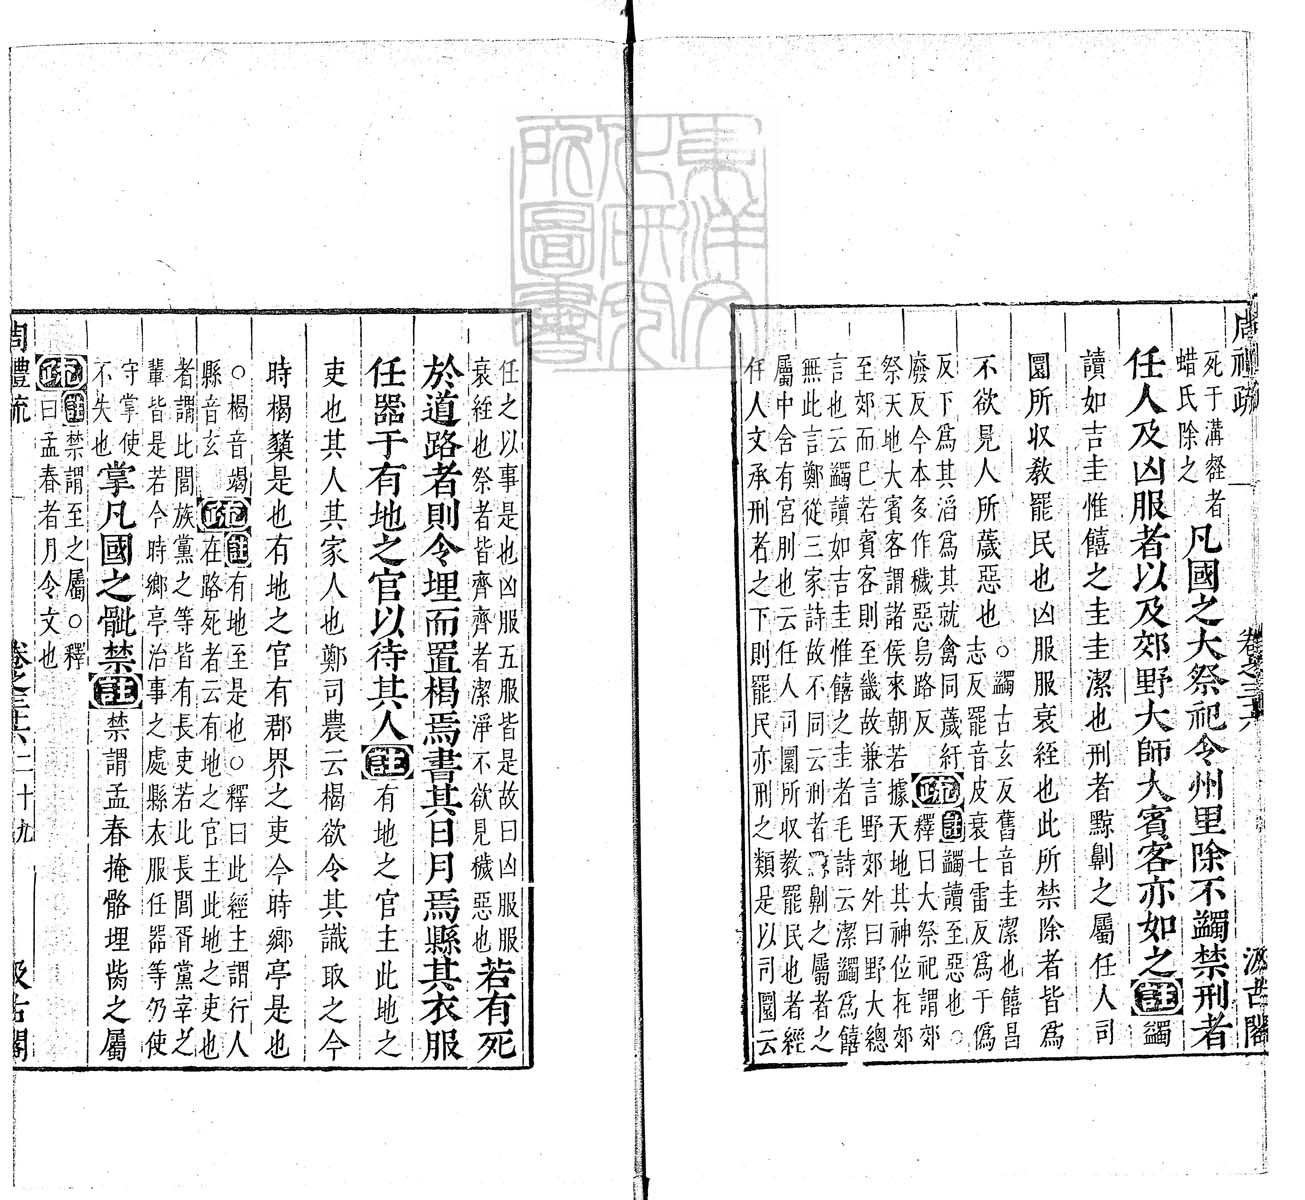 周禮疏 卷之三六 汲古閣
死于溝壑者
蜡氏除之
凡國之大祭祀令州里除不蠲禁刑者
任人及凶服者以及郊野大師大賓客亦如之註蠲
讀如吉圭惟饎之圭圭潔也刑者黥劓之屬任人司
圜所収敎罷民也凶服服衰絰也此所禁除者皆爲
不欲見人所薉惡也
○蠲古玄反舊音圭潔也饎昌
志反罷音皮衰七雷反爲于僞
反下爲其滔爲其就禽同薉紆
廢反今本多作穢惡烏路反
疏註蠲讀至惡也○
釋曰大祭祀謂郊
祭天地大賓客謂諸侯來朝若據天地其神位在郊
至郊而已若賓客則至畿故兼言野郊外曰野大總
言也云蠲讀如吉圭惟饎之圭者毛詩云潔蠲爲饎
無此言鄭從三家詩故不同云刑者黥劓之屬者之
屬中含有宮刖也云任人司圜所収敎罷民也者經
任人文承刑者之下則罷民亦刑之類是以司圜云
任之以事是也凶服五服皆是故曰凶服服
衰絰也祭者皆齊齊者潔淨不欲見穢惡也
若有死
於道路者則令埋而置楬焉書其日月焉縣其衣服
任器于有地之官以待其人註有地之官主此地之
吏也其人其家人也鄭司農云楬欲令其識取之今
時楬櫫是也有地之官有郡界之吏今時鄉亭是也
○楬音竭
縣音玄
疏註有地至是也○釋曰此經主謂行人
在路死者云有地之官主此地之吏也
者謂比閭族黨之等皆有長吏若比長閭胥黨宰之
輩皆是若今時鄉亭治事之處縣衣服任器等仍使
守掌使
不失也
掌凡國之骴禁註禁謂孟春掩骼埋胔之屬
疏註禁謂至之屬○釋
曰孟春者月令文也
周禮疏 卷之三六 二十九 汲古閣
東洋文化研究所圖書